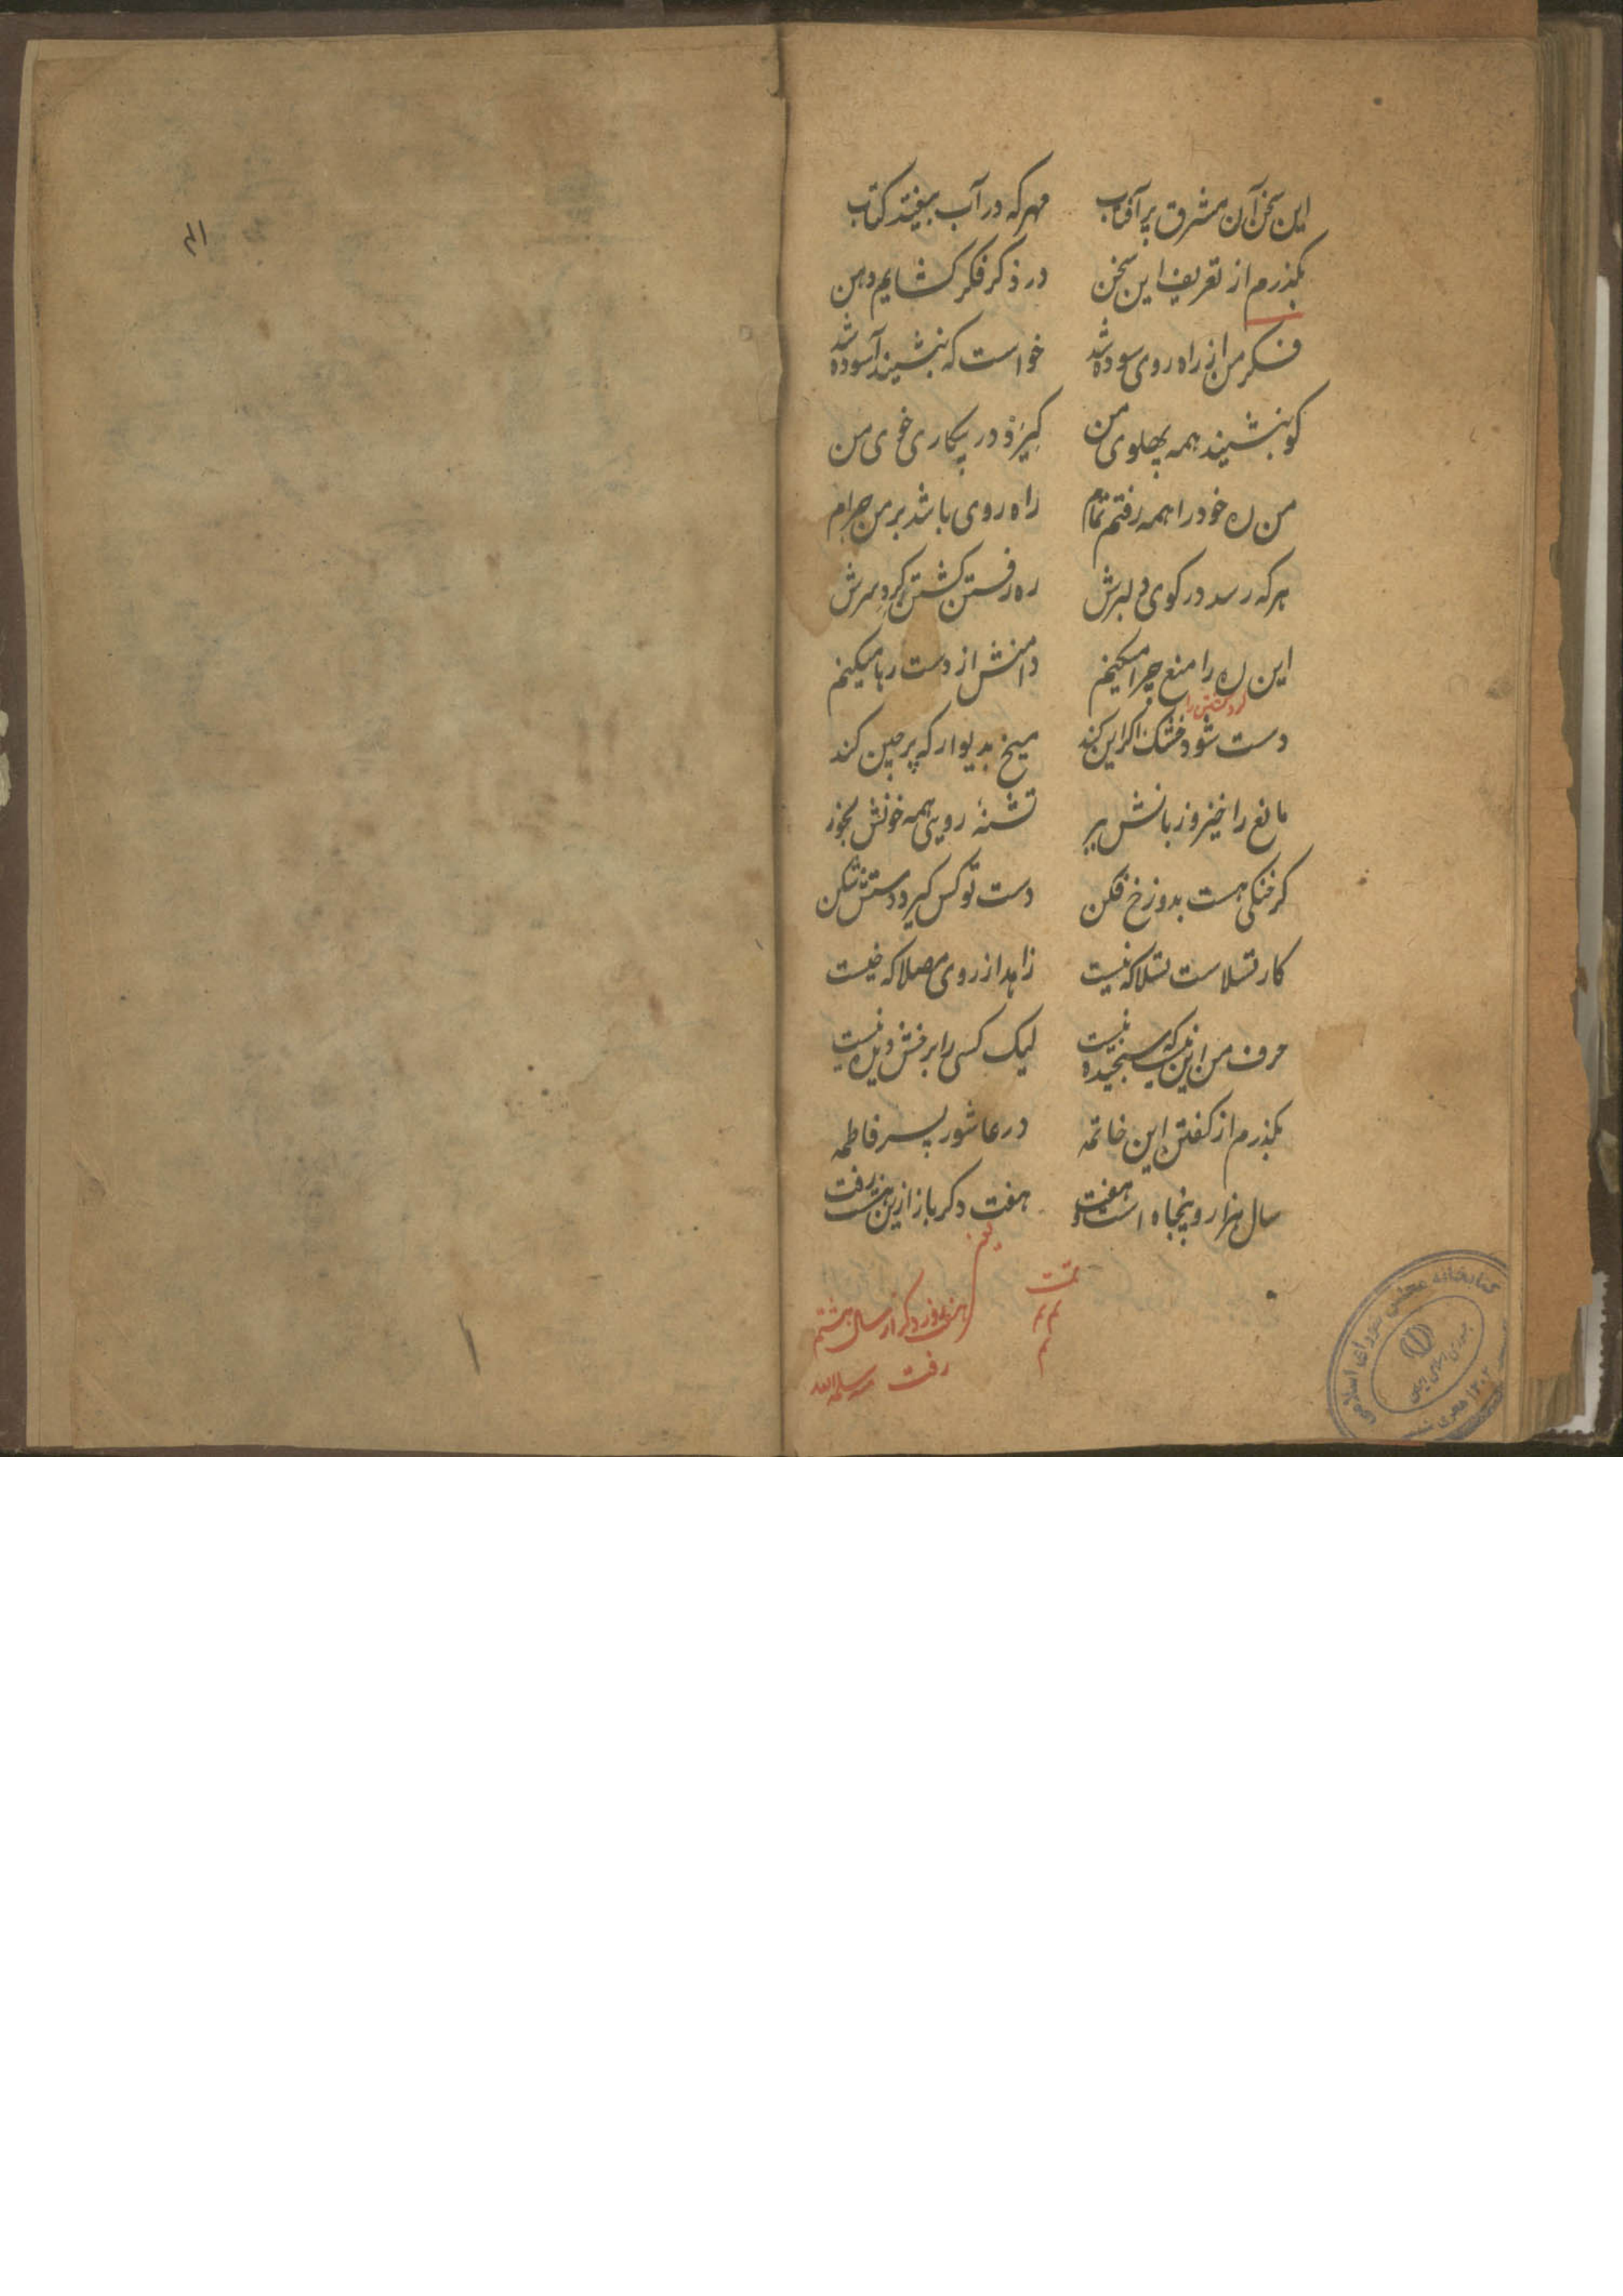 این سخن آن مشرق پر آفتاب مهر که در آب بیفتد کتاب
بگذرم از تعریف این سخن در ذکر فکر گشایم دهن
فکر من از راه روی سوده شد خواست که بنشیند آسوده شد
کو بنشیند همه پهلوی من گیرد در بیکاری خوی من
من ره خود را همه رفتم تمام راه روی باشد بر من حرام
هر که رسد در کوی دلبرش ره رفتن گشتن گرد سرش
این ره را منع چرا میکنم دامنش از دست رها میکنم
دست شود خشک اگر این کند میخ بدیوار که پرچین کند
مانع را خیز و زبانش ببر تشنهٔ رویی همه خونش بخور
گر خنکی هست بدوزخ فکن دست تو کس گیرد دستش شکن
کار تسلاست تسلا که نیست زاهد از روی مصلا که نیست
حرف من این نیست که سنجیده نیست لیک کسی را بر خش دیده نیست
بگذرم از گفتن این خاتمه در عاشور پسر فاطمه
سال هزار و پنجاه است و هفت هفت دگر باز ازین هشت رفت
تمت
هفت روز دگر از سال هشتم
رفت منه سلمه الله
کتابخانه مجلس شورای اسلامی
جمهوری اسلامی ایران